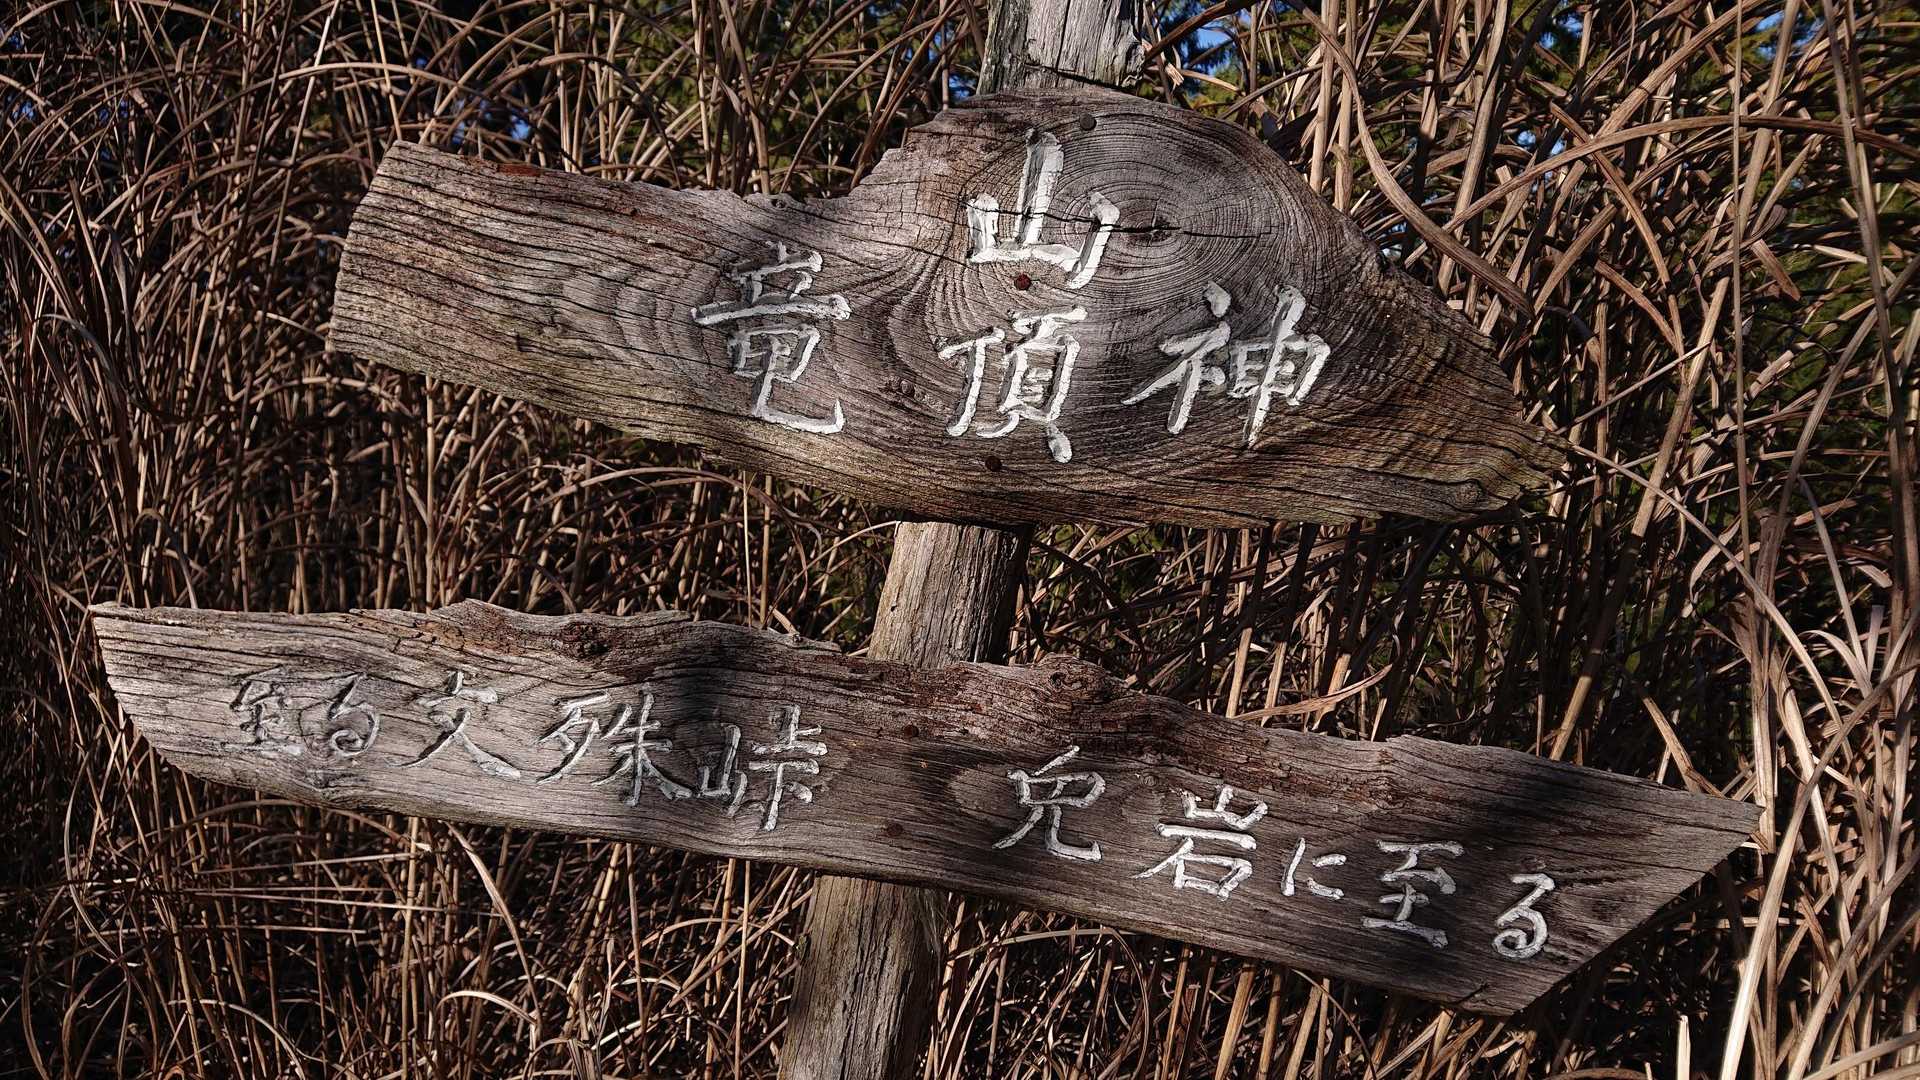 山
竜 頂 神
至る文殊峠 兎岩に至る